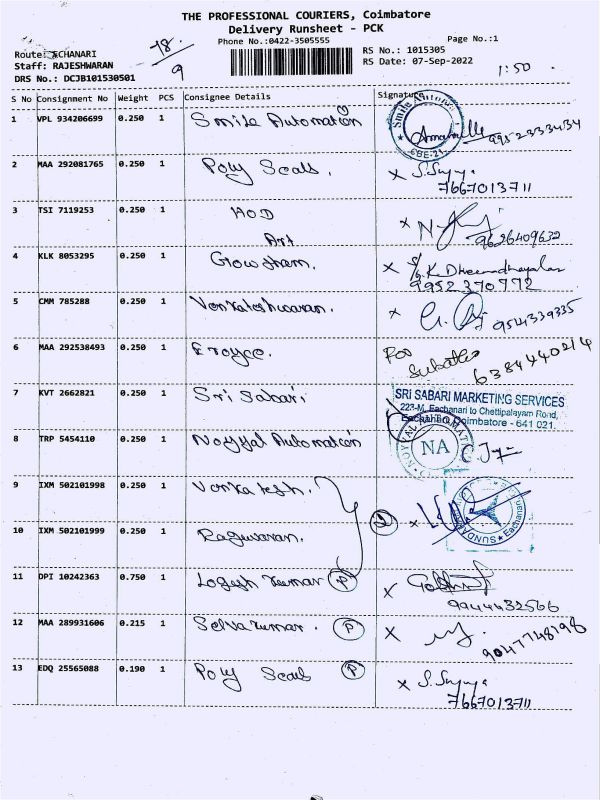 THE PROFESSIONAL COURIERS, Coimbatore
Delivery Runsheet - PCK
Phone No.:0422-3505555
Page No.:1
Route: ECHANARI
Staff: RAJESHWARAN
DRS No.: DCJB101530501
18
9
RS No.: 1015305
RS Date: 07-Sep-2022
1:50
S No Consignment No Weight PCS Consignee Details Signature
1 VPL 934206699 0.250 1 Smile Automation 9952333434
CBE-21
2 MAA 292081765 0.250 1 Poly Seals. x
7667013711
3 TSI 7119253 0.250 1 HOD x
Art 9626409632
4 KLK 8053295 0.250 1 Gowtham. x
9952370772
5 CMM 785288 0.250 1 Venkateshwaran. x
9514339335
6 MAA 292538493 0.250 1 Eroyce.
6384440214
7 KVT 2662821 0.250 1 Sri Sabari
SRI SABARI MARKETING SERVICES
223-M, Eachanari to Chettipalayam Road,
Eachanari, Coimbatore - 641 021.
8 TRP 5454110 0.250 1 Noyyal Automation
NA
9 IXM 502101998 0.250 1 Venkatesh. x
10 IXM 502101999 0.250 1 Raguvaran.
11 DPI 10242363 0.750 1 Logesh Kumar P x
9944432566
12 MAA 289931606 0.215 1 Selvakumar. P x
9047748198
13 EDQ 25565088 0.190 1 Poly Seals P x
7667013711